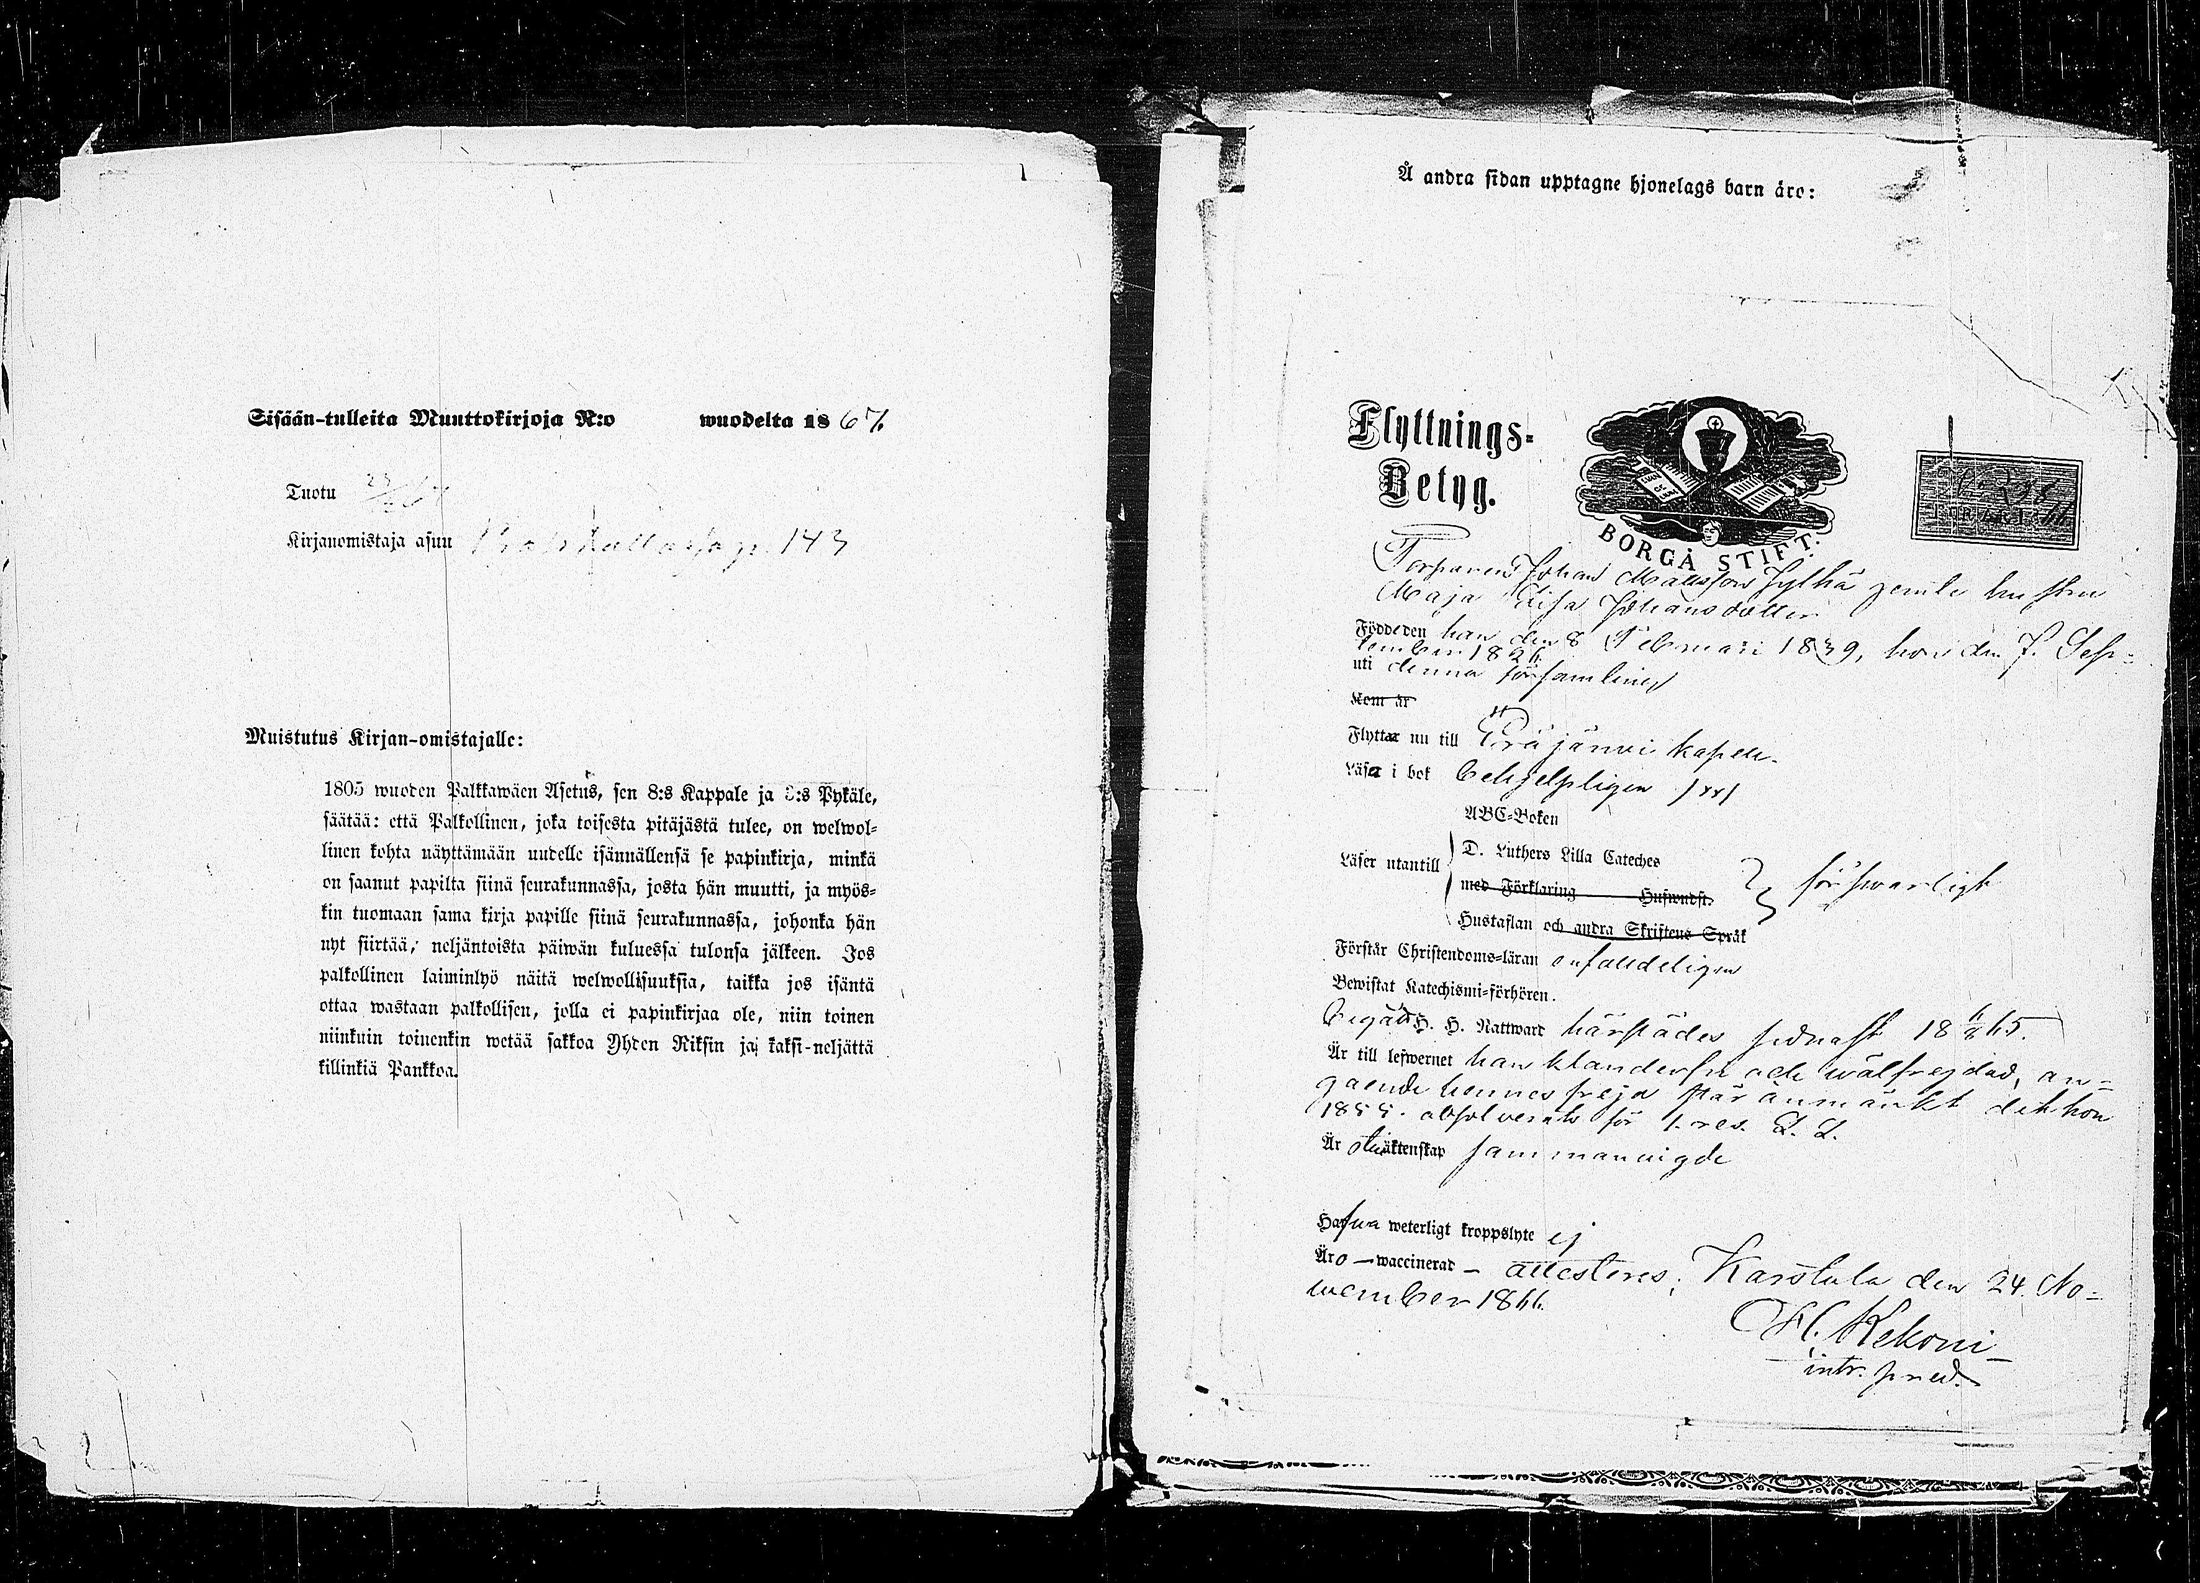 Sisään-tulleita Muuttokirjoja N:o wuodelta 1867.
Tuotu
Kirjanomistaja asuu 143
Muistutus Kirjan-omistajalle:
1805 wuoden Palkkawäen Asetus, sen 8:s Kappale ja :s Pykäle,
säätää: että Palkollinen, joka toisesta pitäjästä tulee, on welwol-
linen kohta näyttämään uudelle isännällensä se papinkirja, minkä
on saanut papilta siinä seurakunnassa, josta hän muutti, ja myös-
kin tuomaan sama kirja papille siinä seurakunnassa, johonka hän
nyt siirtää, neljäntoista päiwän kuluessa tulonsa jälkeen. Jos
palkollinen laiminlyö näitä welwollisuuksia, taikka jos isäntä
ottaa wastaan palkollisen, jolla ei papinkirjaa ole, niin toinen
niinkuin toinenkin wetää sakkoa Yhden Riksin ja kaksi-neljättä
killinkiä Pankkoa.
Å andra sidan upptagne hjonelags barn äro:
Flyttnings-
Betyg.
BORGÅ STIFT.
Torparen Johan Mattsson Jylhä jemte hustru
Maja Lisa Johansdotter
Födde den han den 8 Februari 1839, hon den 7. Sep-
tember 1826.
uti denna församling
Kom år
Flytta nu till Pääjärvi kapell.
Läsa i bok behjelpligen /xx/
ABC-Boken
Läser utantill D. Luthers Lilla Cateches
med Förklaring Husvudst. försvarligt
Hustaflan och andra Skriftens Språk
Förstår Christendoms-läran enfaldeligen
Bewistat Katechismi-förhören.
Begått H. H. Nattward härstädes sednast 18 65.
Är till lefwernet han klanderfri och wälfrejdad, an-
gående hennes frejd står anmärkt det hon
1855. absolverats för 1. res. L. L.
Är otill äktenskap sammanvigde
Hafwa weterligt kroppslyte ej
Äro - waccinerad - attesteres; Karstula den 24. No-
wember 1866.
H. Kekoni
intr. pred.